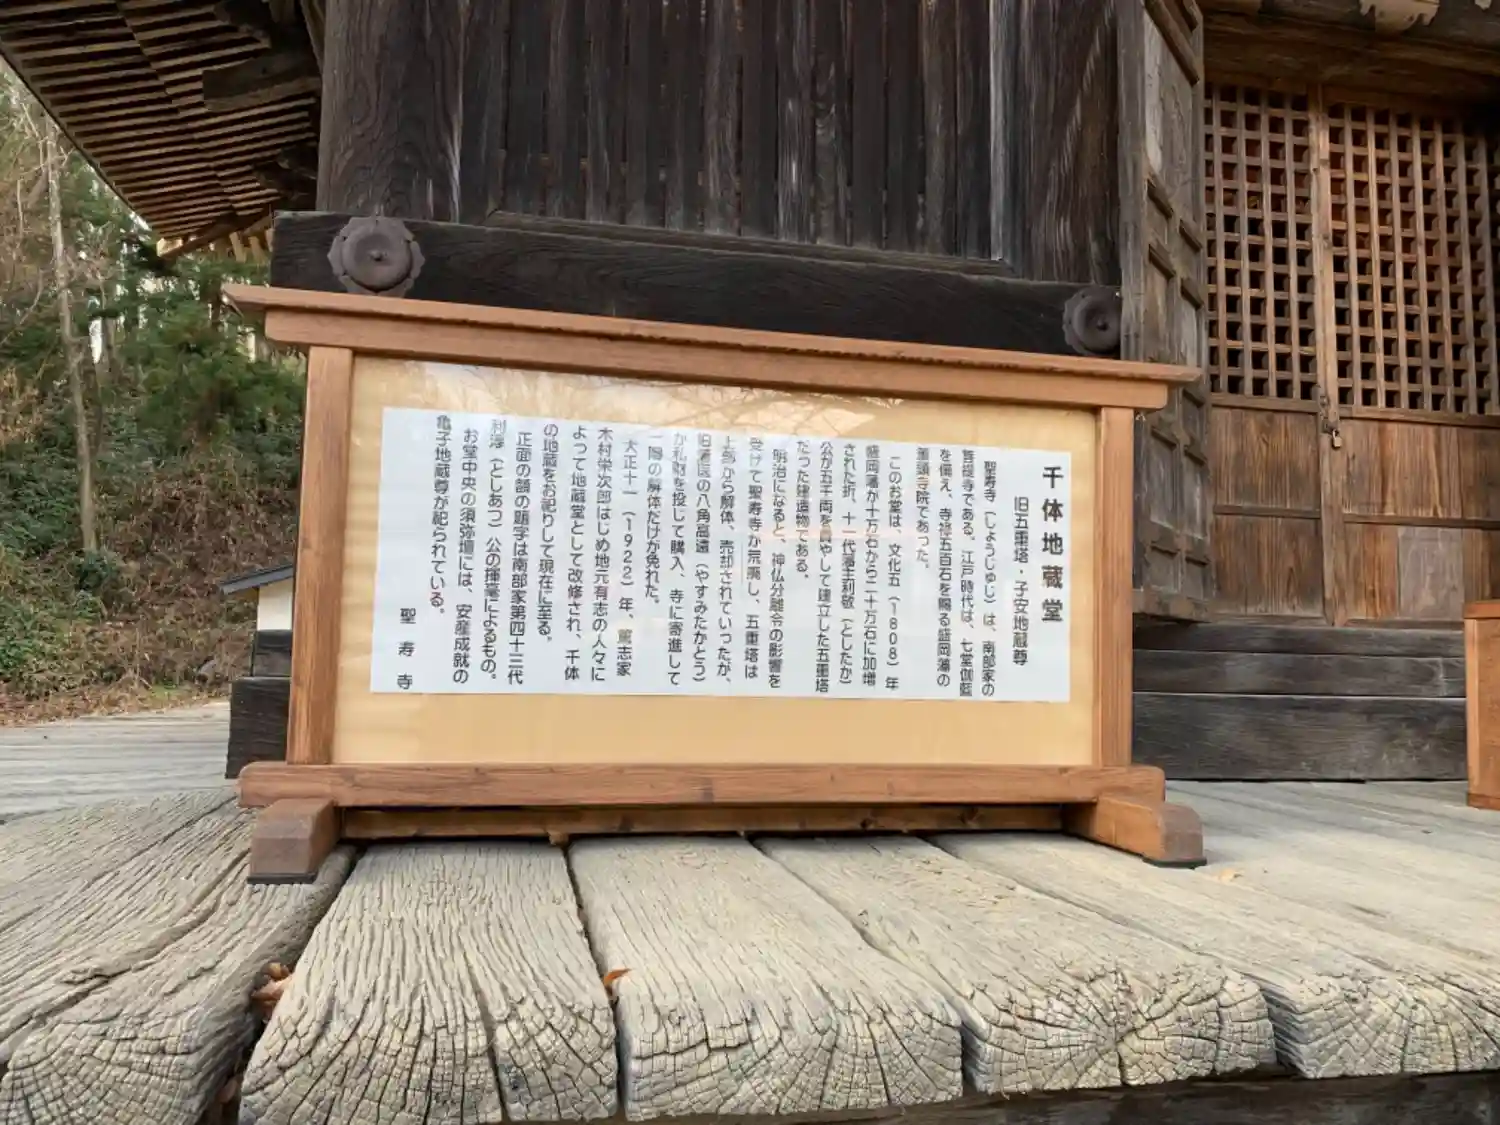 千体地蔵堂
旧五重塔・子安地蔵尊
聖寿寺（しょうじゅじ）は、南部家の
菩提寺である。江戸時代は、七堂伽藍
を備え、寺禄五百石を賜る盛岡藩の
筆頭寺院であった。
このお堂は、文化五（１８０８）年
盛岡藩が十万石から二十万石に加増
された折、十一代藩主利敬（としたか）
公が五千両を費やして建立した五重塔
だった建造物である。
明治になると、神仏分離令の影響を
受けて聖寿寺が荒廃し、五重塔は
上部から解体、売却されていったが、
旧藩医の八角高遠（やすみたかとう）
が私財を投じて購入、寺に寄進して
一階の解体だけが免れた。
大正十一（１９２２）年、篤志家
木村栄次郎はじめ地元有志の人々に
よって地蔵堂として改修され、千体
の地蔵をお祀りして現在に至る。
正面の額の題字は南部家第四十三代
利淳（としあつ）公の揮毫によるもの。
お堂中央の須弥壇には、安産成就の
亀子地蔵尊が祀られている。
聖寿寺